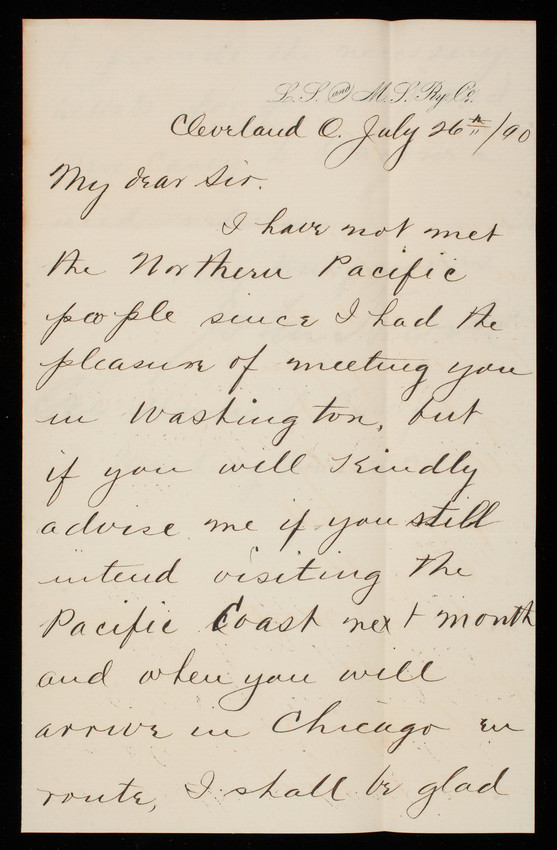 L. S. and M. S. Ry. Co.
Cleveland O. July 26th/90
My dear Sir.
I have not met
the Northern Pacific
people since I had the
pleasure of meeting you
in Washington, but
if you will kindly
advise me if you still
intend visiting the
Pacific Coast next month
and when you will
arrive in Chicago en
route, I shall be glad